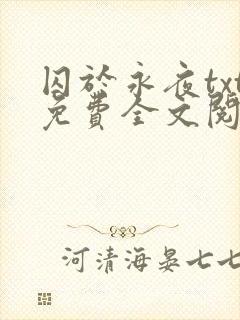 囚於永夜txt
免費全文閱
河清海晏七七